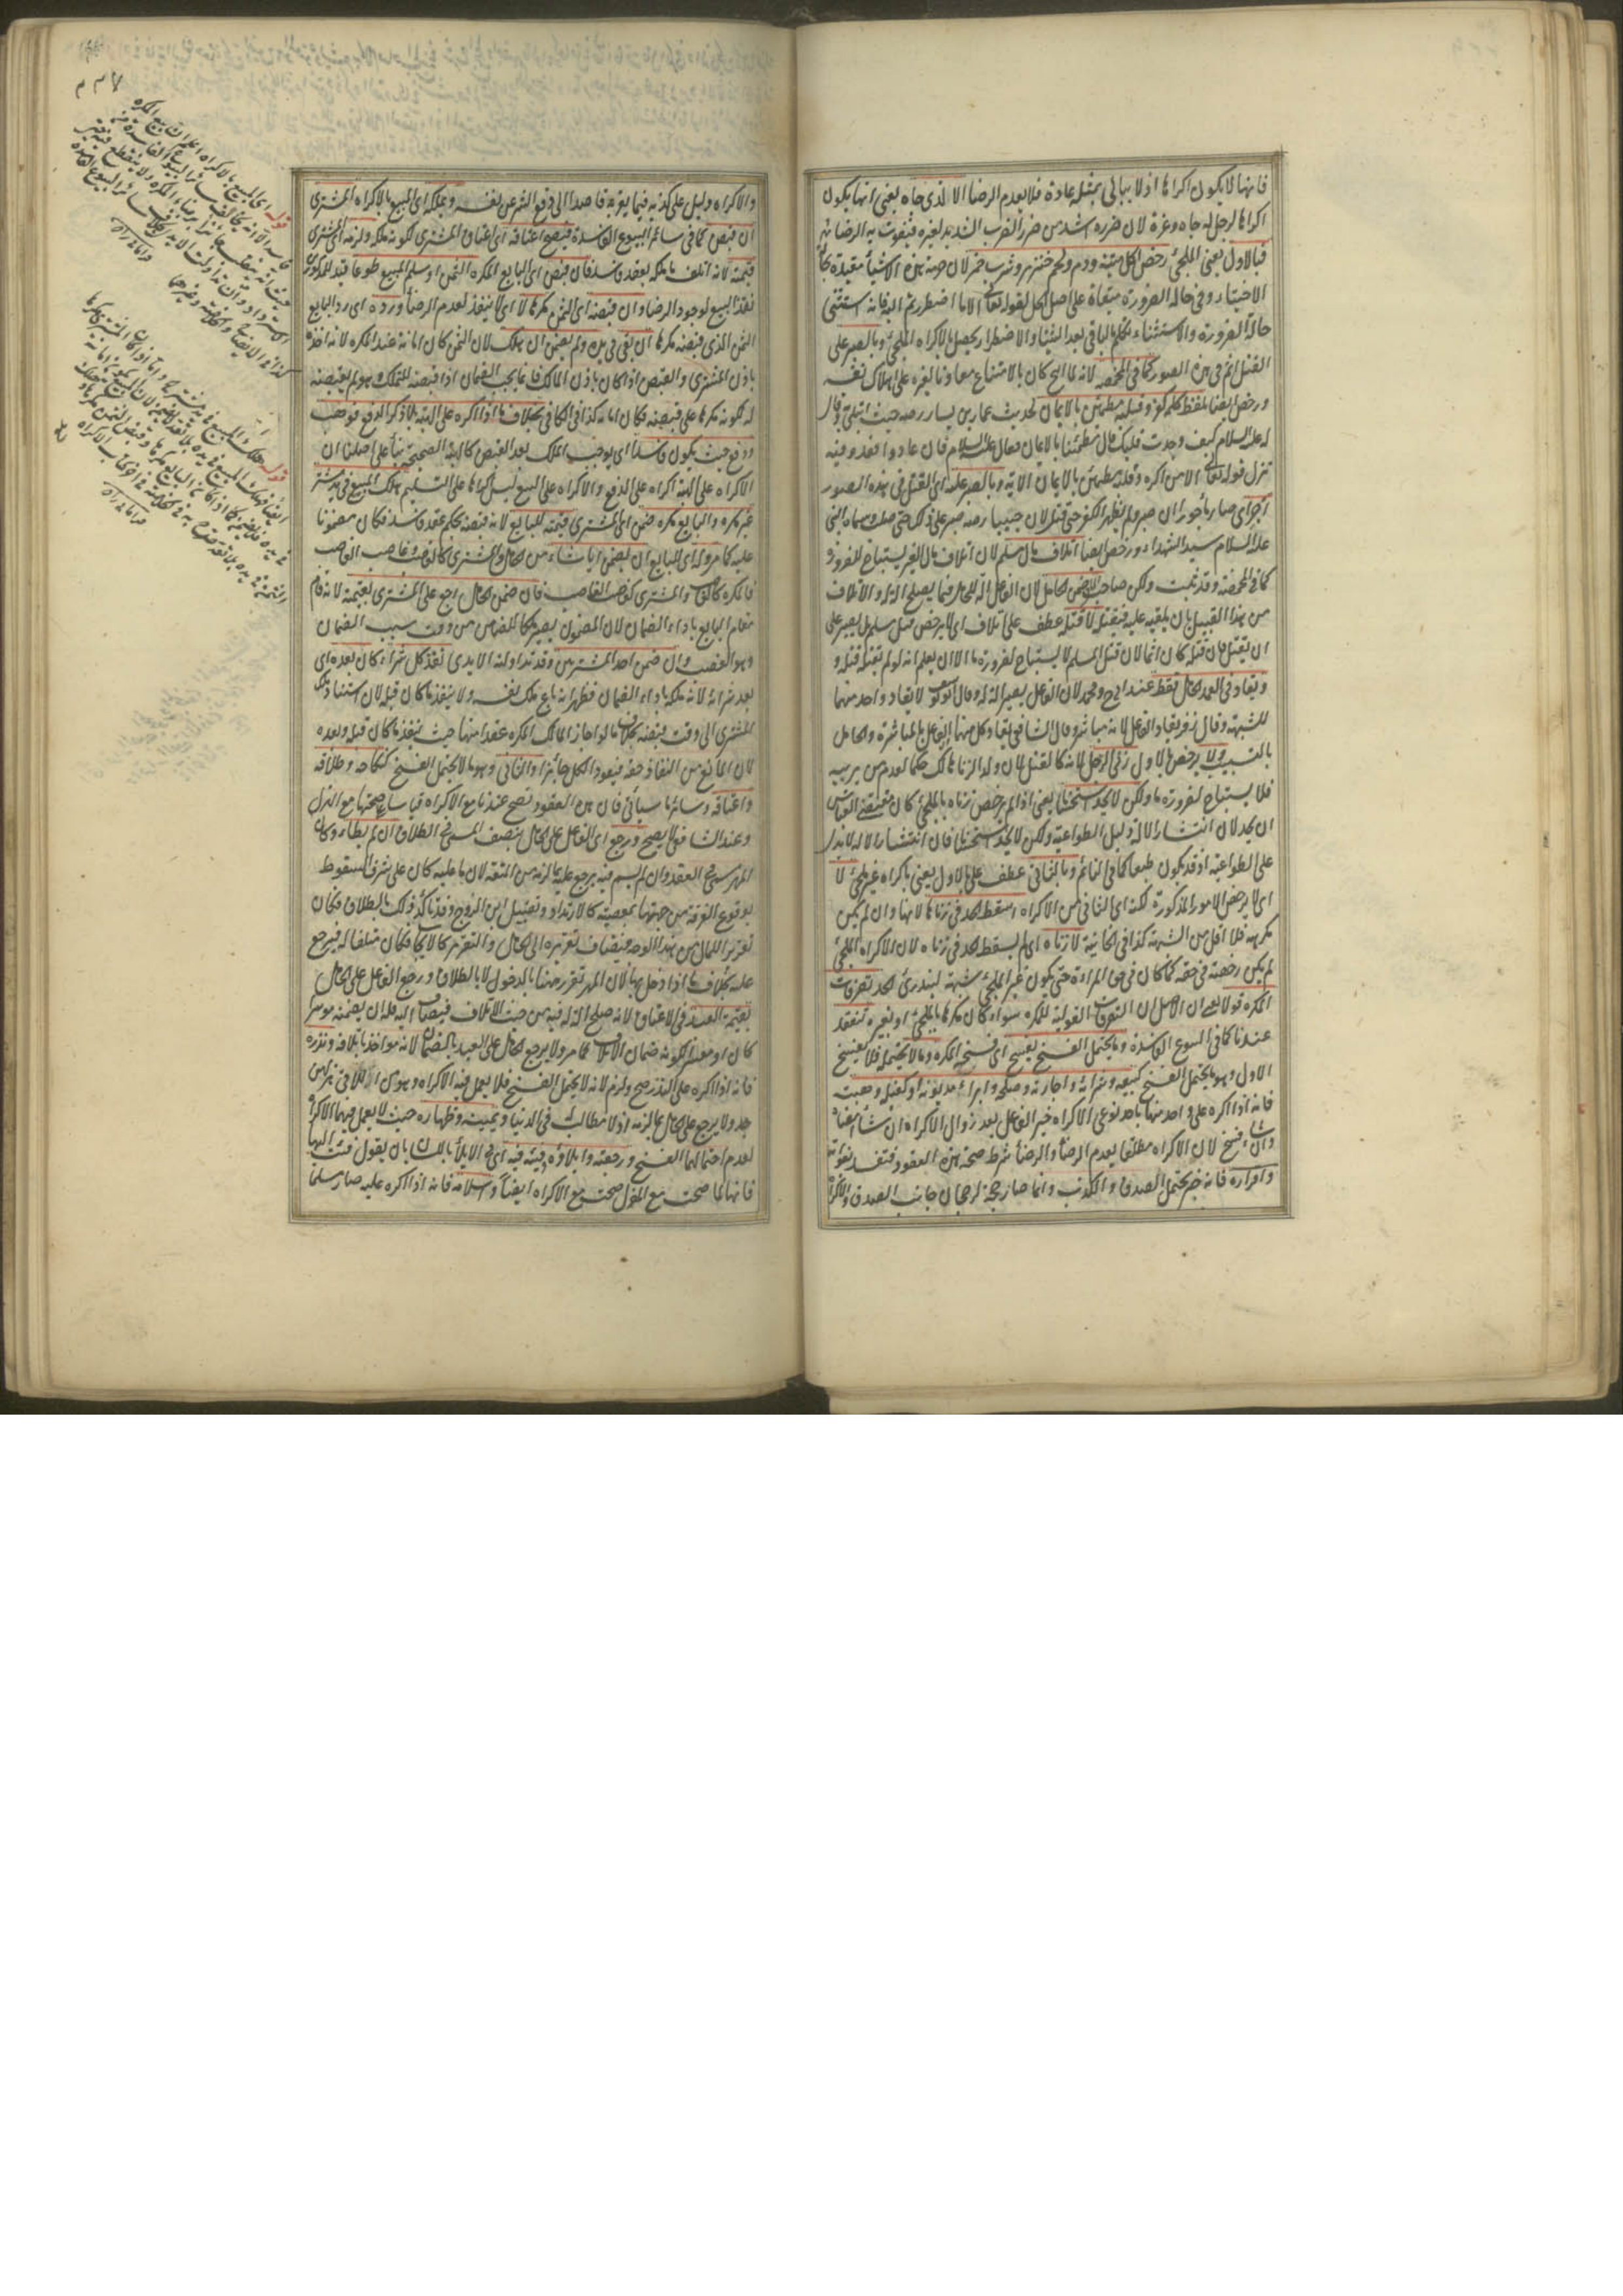 فانها لا يكون اكراها اذ لا يبالى بمثله عادة فلا يعدم الرضا الا لذى جاه يعنى انها يكون
اكراها لرجل له جاه وعزة لان ضرره اشد من ضرر الضرب الشديد لغيره فيفوت به الرضا
فبالاول يعنى الملجئ رخص اكل ميتة ودم ولحم خنزير وشرب خمر لان حرمة هذه الاشياء مقيدة بحالة
الاختيار وفى حالة الضرورة مبقاة على اصل الحل لقوله تعالى الا ما اضطررتم اليه فانه استثنى
حالة الضرورة والاستثناء تكلم بالباقى بعد الثنيا والاضطرار يحصل بالاكراه الملجئ وبالصبر على
القتل اثم فى هذه الصور كما فى المخمصة لانه لما ابيح كان بالامتناع معاونا لغيره على اهلاك نفسه
ورخص ايضا تلفظ كلمة كفر وقلبه مطمئن بالايمان لحديث عمار بن ياسر رضه حيث ابتلى وقال
له عليه السلام كيف وجدت قلبك قال مطمئنا بالايمان فقال عليه السلام فان عادوا فعد وفيه
نزل قوله تعالى الا من اكره وقلبه مطمئن بالايمان الاية وبالصبر عليه اى القتل فى هذه الصور
اجر اى صار مأجورا ان صبر ولم يظهر الكفر حتى قتل لان خبيبا رضه صبر على ذلك حتى صلب وسماه النبى
عليه السلام سيد الشهداء ورخص ايضا اتلاف مال مسلم لان اتلاف مال الغير يستباح للضرورة
كما فى المخمصة وقد تحققت ولكن صاحبه يضمن الحامل لان الفاعل آلة للحامل فيما يصلح آلة والاتلاف
من هذا القبيل بان يلقيه عليه فيقتله لا قتله عطف على اتلاف اى لا يرخص قتل مسلم بل يصبر على
ان يقتل فان قتله كان اثما لان قتل المسلم لا يستباح لضرورة ما الا ان يعلم انه لو لم يقتله قتله و
ويقاد فى العمد الحامل فقط عند ابى ح ومحمد لان الفاعل يصير آلة له وقال ابو يوسف لا يقاد واحد منهما
للشبهة وقال زفر يقاد الفاعل لانه مباشر وقال الشافعى يقاد كل منهما الفاعل بالمباشرة والحامل
بالتسبيب ولا يرخص بالاول زنى الرجل لانه كالقتل لان ولد الزنا هالك حكما لعدم من يربيه
فلا يستباح لضرورة ما ولكن لا يحد استحسانا يعنى اذا لم يرخص زناه بالملجئ كان مقتضى القياس
ان يحد لان انتشار الآلة دليل الطواعية ولكن لا يحد استحسانا فان انتشار الآلة لا يدل
على الطواعية اذ قد يكون طبعا كما فى النائم وبالثانى عطف على بالاول يعنى باكراه غير ملجئ لا
اى لا يرخص الامور المذكورة لكنه اى الثانى من الاكراه اسقط الحد فى زناها لانها وان لم يكن
مكرهة فلا اقل من الشبهة كذا فى الخانية لا زناه اى لم يسقط الحد فى زناه لان الاكراه الملجئ
لم يكن رخصة فى حقه كما كان فى حق المرأة حتى يكون غير الملجئ شبهة ليندرئ الحد تصرفات
المكره قولا يعنى ان الاصل ان التصرفات القولية للمكره سواء كان مكرها بالملجئ او بغيره تنعقد
عندنا كما فى البيوع الفاسدة وما يحتمل الفسخ يفسخ اى فسخ المكره وما لا يحتمله فلا يفسخ
الاول وهو ما يحتمل الفسخ كبيعه وشرائه واجارته وصلحه وابراء مديونه او كفيله وهبته
فانه اذا اكره على واحد منها باحد نوعى الاكراه خير الفاعل بعد زوال الاكراه ان شاء امضاه
وان شاء فسخ لان الاكراه مطلقا يعدم الرضا والرضا شرط صحة هذه العقود فتفسد بفواته
واقراره فانه خبر يحتمل الصدق والكذب وانما صار حجة لرجحان جانب الصدق والاكراه
والاكراه دليل على كذبه فيما يقر به قاصدا الى دفع الشر عن نفسه ويملكه اى المبيع بالاكراه المشترى
ان قبض كما فى سائر البيوع الفاسدة فيصح اعتاقه اى اعتاق المشترى لكونه ملكه ولزمه اى المشترى
قيمته لانه اتلف ما ملكه بعقد فاسد فان قبض اى البايع المكره الثمن او سلم المبيع طوعا قيد للمذكورين
نفذ البيع لوجود الرضا وان قبضه اى الثمن مكرها لا اى لا ينفذ لعدم الرضا ورده اى رد البايع
الثمن الذى قبضه مكرها ان بقى فى يده ولم يضمن ان هلك لان الثمن كان امانة عند المكره لانه اخذه
باذن المشترى والقبض اذا كان باذن المالك فانما يجب الضمان اذا قبضه للتملك وهو لم يقبضه
له لكونه مكرها على قبضه فكان امانة كذا فى الكافى بخلاف ما اذا اكره على الهبة بلا ذكر الدفع فوهب
ودفع حيث يكون فاسدا اى يوجب الملك بعد القبض كالهبة الصحيحة بناء على اصلنا ان
الاكراه على الهبة اكراه على الدفع والاكراه على البيع ليس اكراها على التسليم هلك المبيع فى يد مشتر
غير مكره والبايع مكره ضمن اى المشترى قيمته للبايع لانه قبضه بحكم عقد فاسد فكان مضمونا
عليه كما مر وله اى للبايع ان يضمن ايا شاء من الحامل والمشترى كالغاصب وغاصب الغاصب
فالمكره كالغاصب والمشترى كغاصب الغاصب فان ضمن الحامل رجع على المشترى بقيمته لانه قام
مقام البايع باداء الضمان لان المضمون يصير ملكا للضامن من وقت سبب الضمان
وهو الغصب وان ضمن احد المشتريين وقد تداولته الايدى نفذ كل شراء كان بعده اى
بعد شرائه لانه ملكه باداء الضمان فظهر انه باع ملك نفسه ولا ينفذ ما كان قبله لان استناد ملك
المشترى الى وقت قبضه بخلاف ما لو اجاز المالك المكره عقدا منها حيث ينفذ ما كان قبله وبعده
لان المانع من النفاذ حقه فيعود الكل جائزا والثانى وهو ما لا يحتمل الفسخ كنكاحه وطلاقه
واعتاقه وسائر ما سيأتى فان هذه العقود تصح عندنا مع الاكراه قياسا على صحتها مع الهزل
وعند الشافعى لا يصح ورجع اى الفاعل على الحامل بنصف المسمى فى الطلاق ان لم يطأ وكان
المهر مسمى فى العقد وان لم يسم فيه يرجع عليه بما لزمه من المتعة لان ما عليه كان على شرف السقوط
بوقوع الفرقة من جهتها بمعصية كالارتداد وتقبيل ابن الزوج وقد تأكد ذلك بالطلاق فكان
تقريرا للمال من هذا الوجه فيضاف تقريره الى الحامل والتقرير كالايجاب فكان متلفا له فيرجع
عليه بخلاف ما اذا دخل بها لان المهر تقرر هنا بالدخول لا بالطلاق ورجع الفاعل على الحامل
بقيمة العبد فى الاعتاق لانه صلح آلة له فيه من حيث الاتلاف فيضاف اليه فله ان يضمنه موسرا
كان او معسرا لكونه ضمان الاتلاف كما مر ولا يرجع الحامل على العبد بالضمان لانه مواخذ باتلافه ونذره
فانه اذا اكره على النذر صح ولزم لانه لا يحتمل الفسخ فلا يعمل فيه الاكراه وهو من اللاتى هزلهن
جد ولا يرجع على الحامل بما لزمه اذ لا مطالب له فى الدنيا ويمينه وظهاره حيث لا يعمل فيهما الاكراه
لعدم احتمالهما الفسخ ورجعته وايلاؤه وفيئه فيه اى فى الايلاء باللسان بان يقول فئت اليها
فانها لما صحت مع الهزل صحت مع الاكراه ايضا واسلامه فانه اذا اكره عليه صار مسلما